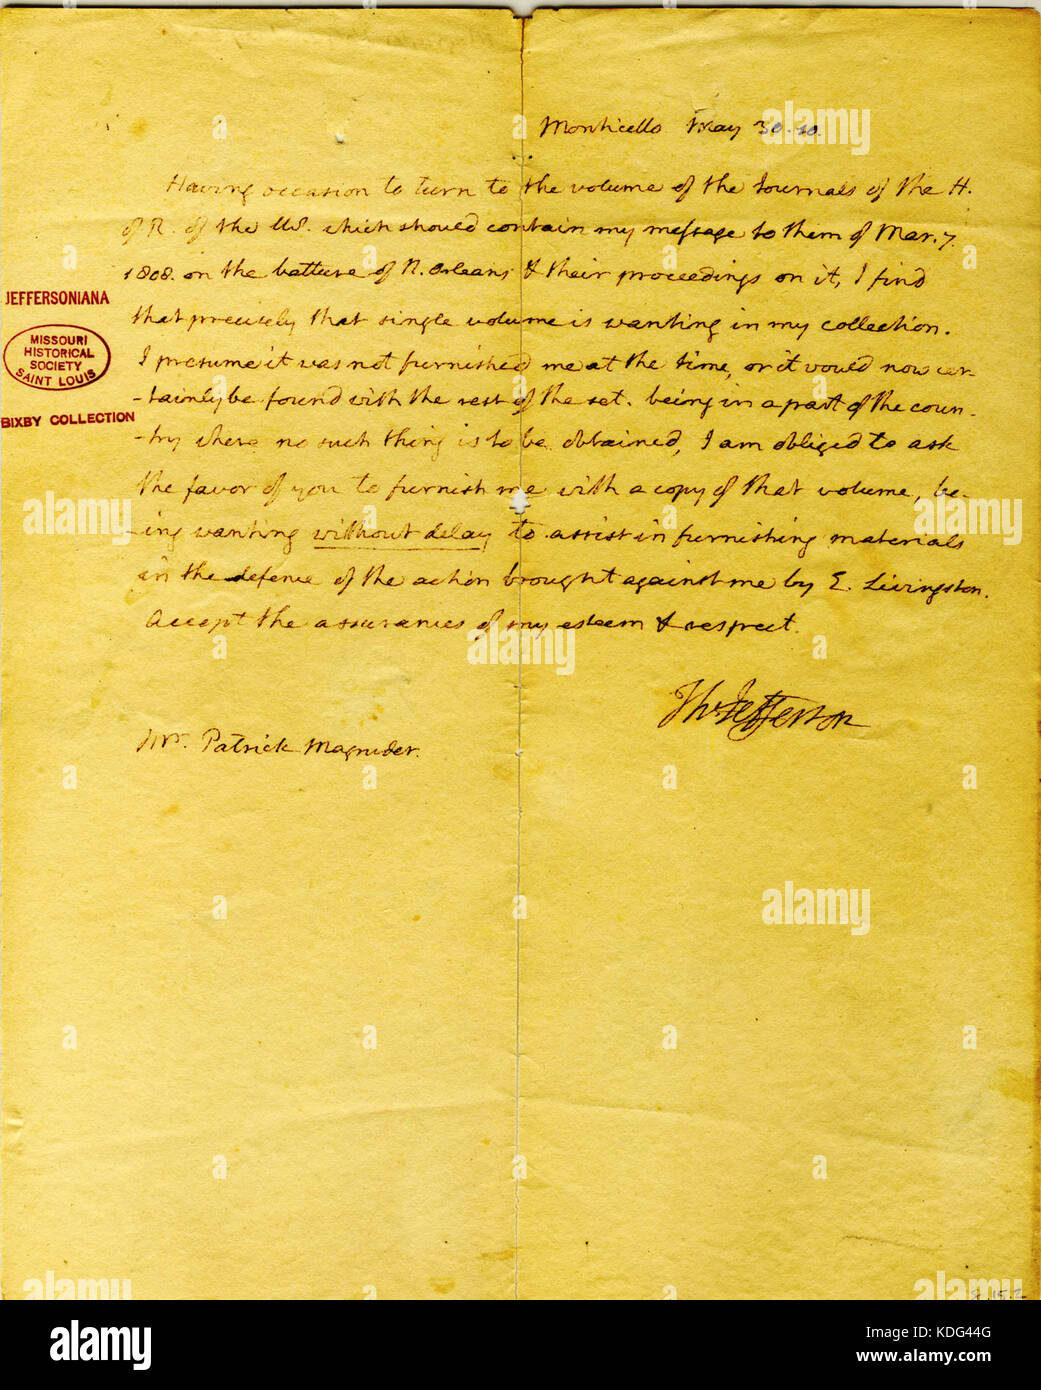 Monticello May 30. 10.
Having occasion to turn to the volume of the Journals of the H.
of R. of the US. which should contain my message to them of Mar. 7.
1808. on the batture of N. Orleans & their proceedings on it, I find
that precisely that single volume is wanting in my collection.
I presume it was not furnished me at the time, or it would now cer-
-tainly be found with the rest of the set. being in a part of the coun-
-try where no such thing is to be obtained, I am obliged to ask
the favor of you to furnish me with a copy of that volume, be-
-ing wanting without delay to assist in furnishing materials
in the defence of the action brought against me by E. Livingston.
Accept the assurances of my esteem & respect.
Th: Jefferson
Mr. Patrick Magruder.
JEFFERSONIANA
MISSOURI
HISTORICAL
SOCIETY
SAINT LOUIS
BIXBY COLLECTION
alamy
alamy
alamy
alamy
alamy
alamy
alamy
alamy
alamy
a alamy
Image ID: KDG44G
www.alamy.com